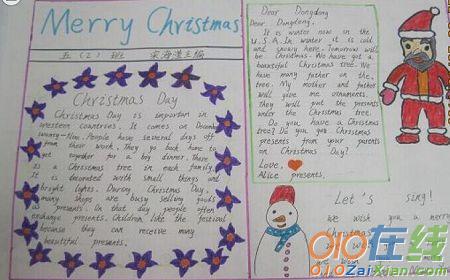 Merry Christmas
五(2)班 主编
Christmas Day
Christmas Day is importan in
western countries. It comes on
People have several days off
from their work. They go back home to
get together for a big dinner. There
is a Christmas tree in each family.
It is decorated with small things and
bright lights. During Christmas Day,
many shops are busy selling goods
as presents. On that day people often
exchange presents. Children like the festival
because they can receive many
beautiful presents.
Dear Dongdong
Dear Dingdong,
It is winter now in the
U.S.A. In winter it is cold
and snowy here. Tomorrow will
be Christmas. We have got a
beautiful Christmas tree. We
have many father on the
tree. My mother and father
will give me ornaments.
they will put the presents
under the Christmas tree.
Do you have a Christmas
tree? Do you get Christmas
presents from your parents
on Christmas Day?
Love,
Alice presents.
Let's sing!
we wish you a merry
Christmas
we wish
we wish
010在线
010ZaiXian.com